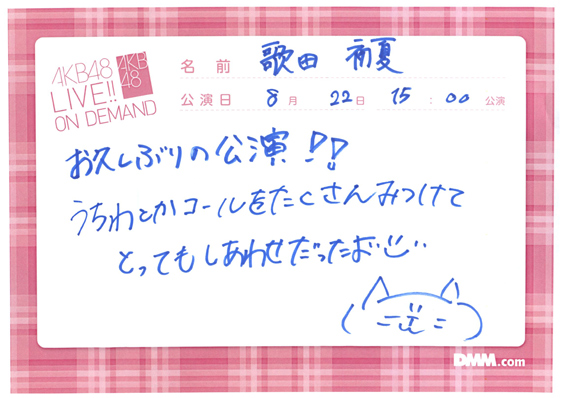 AKB48
LIVE!!
ON DEMAND
AKB
48
名前 歌田 初夏
公演日 8月 22日 15:00 公演
お久しぶりの公演!!
うちわとかコールをたくさんみつけて
とってもしあわせだったお
DMM.com